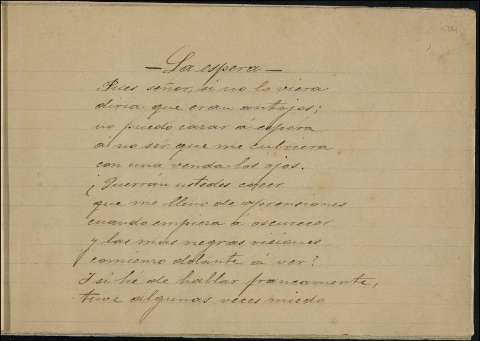 — La espera —
Pues señor, si no lo viera
diria que eran antojos;
no puedo cazar á espera
a no ser que me cubriera
con una venda los ojos.
¿Querrán ustedes creer
que me lleno de aprensiones
cuando empieza á oscurecer
y las mas negras visiones
comienzo delante á ver?
Y si hé de hablar francamente,
tuve algunas veces miedo